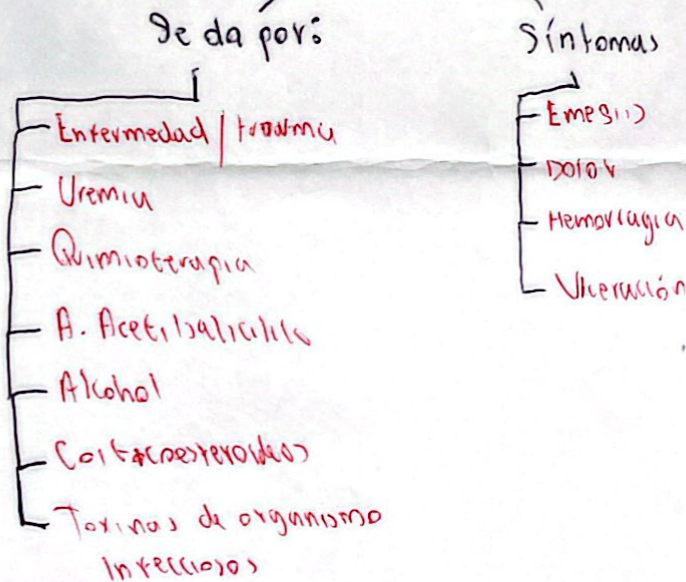 Se da por:
Síntomas
Enfermedad / trauma
Uremia
Quimioterapia
A. Acetilsalicílico
Alcohol
Corticoesteroides
Toxinas de organismo
Infecciosos
Emesis
Dolor
Hemorragia
Ulceración